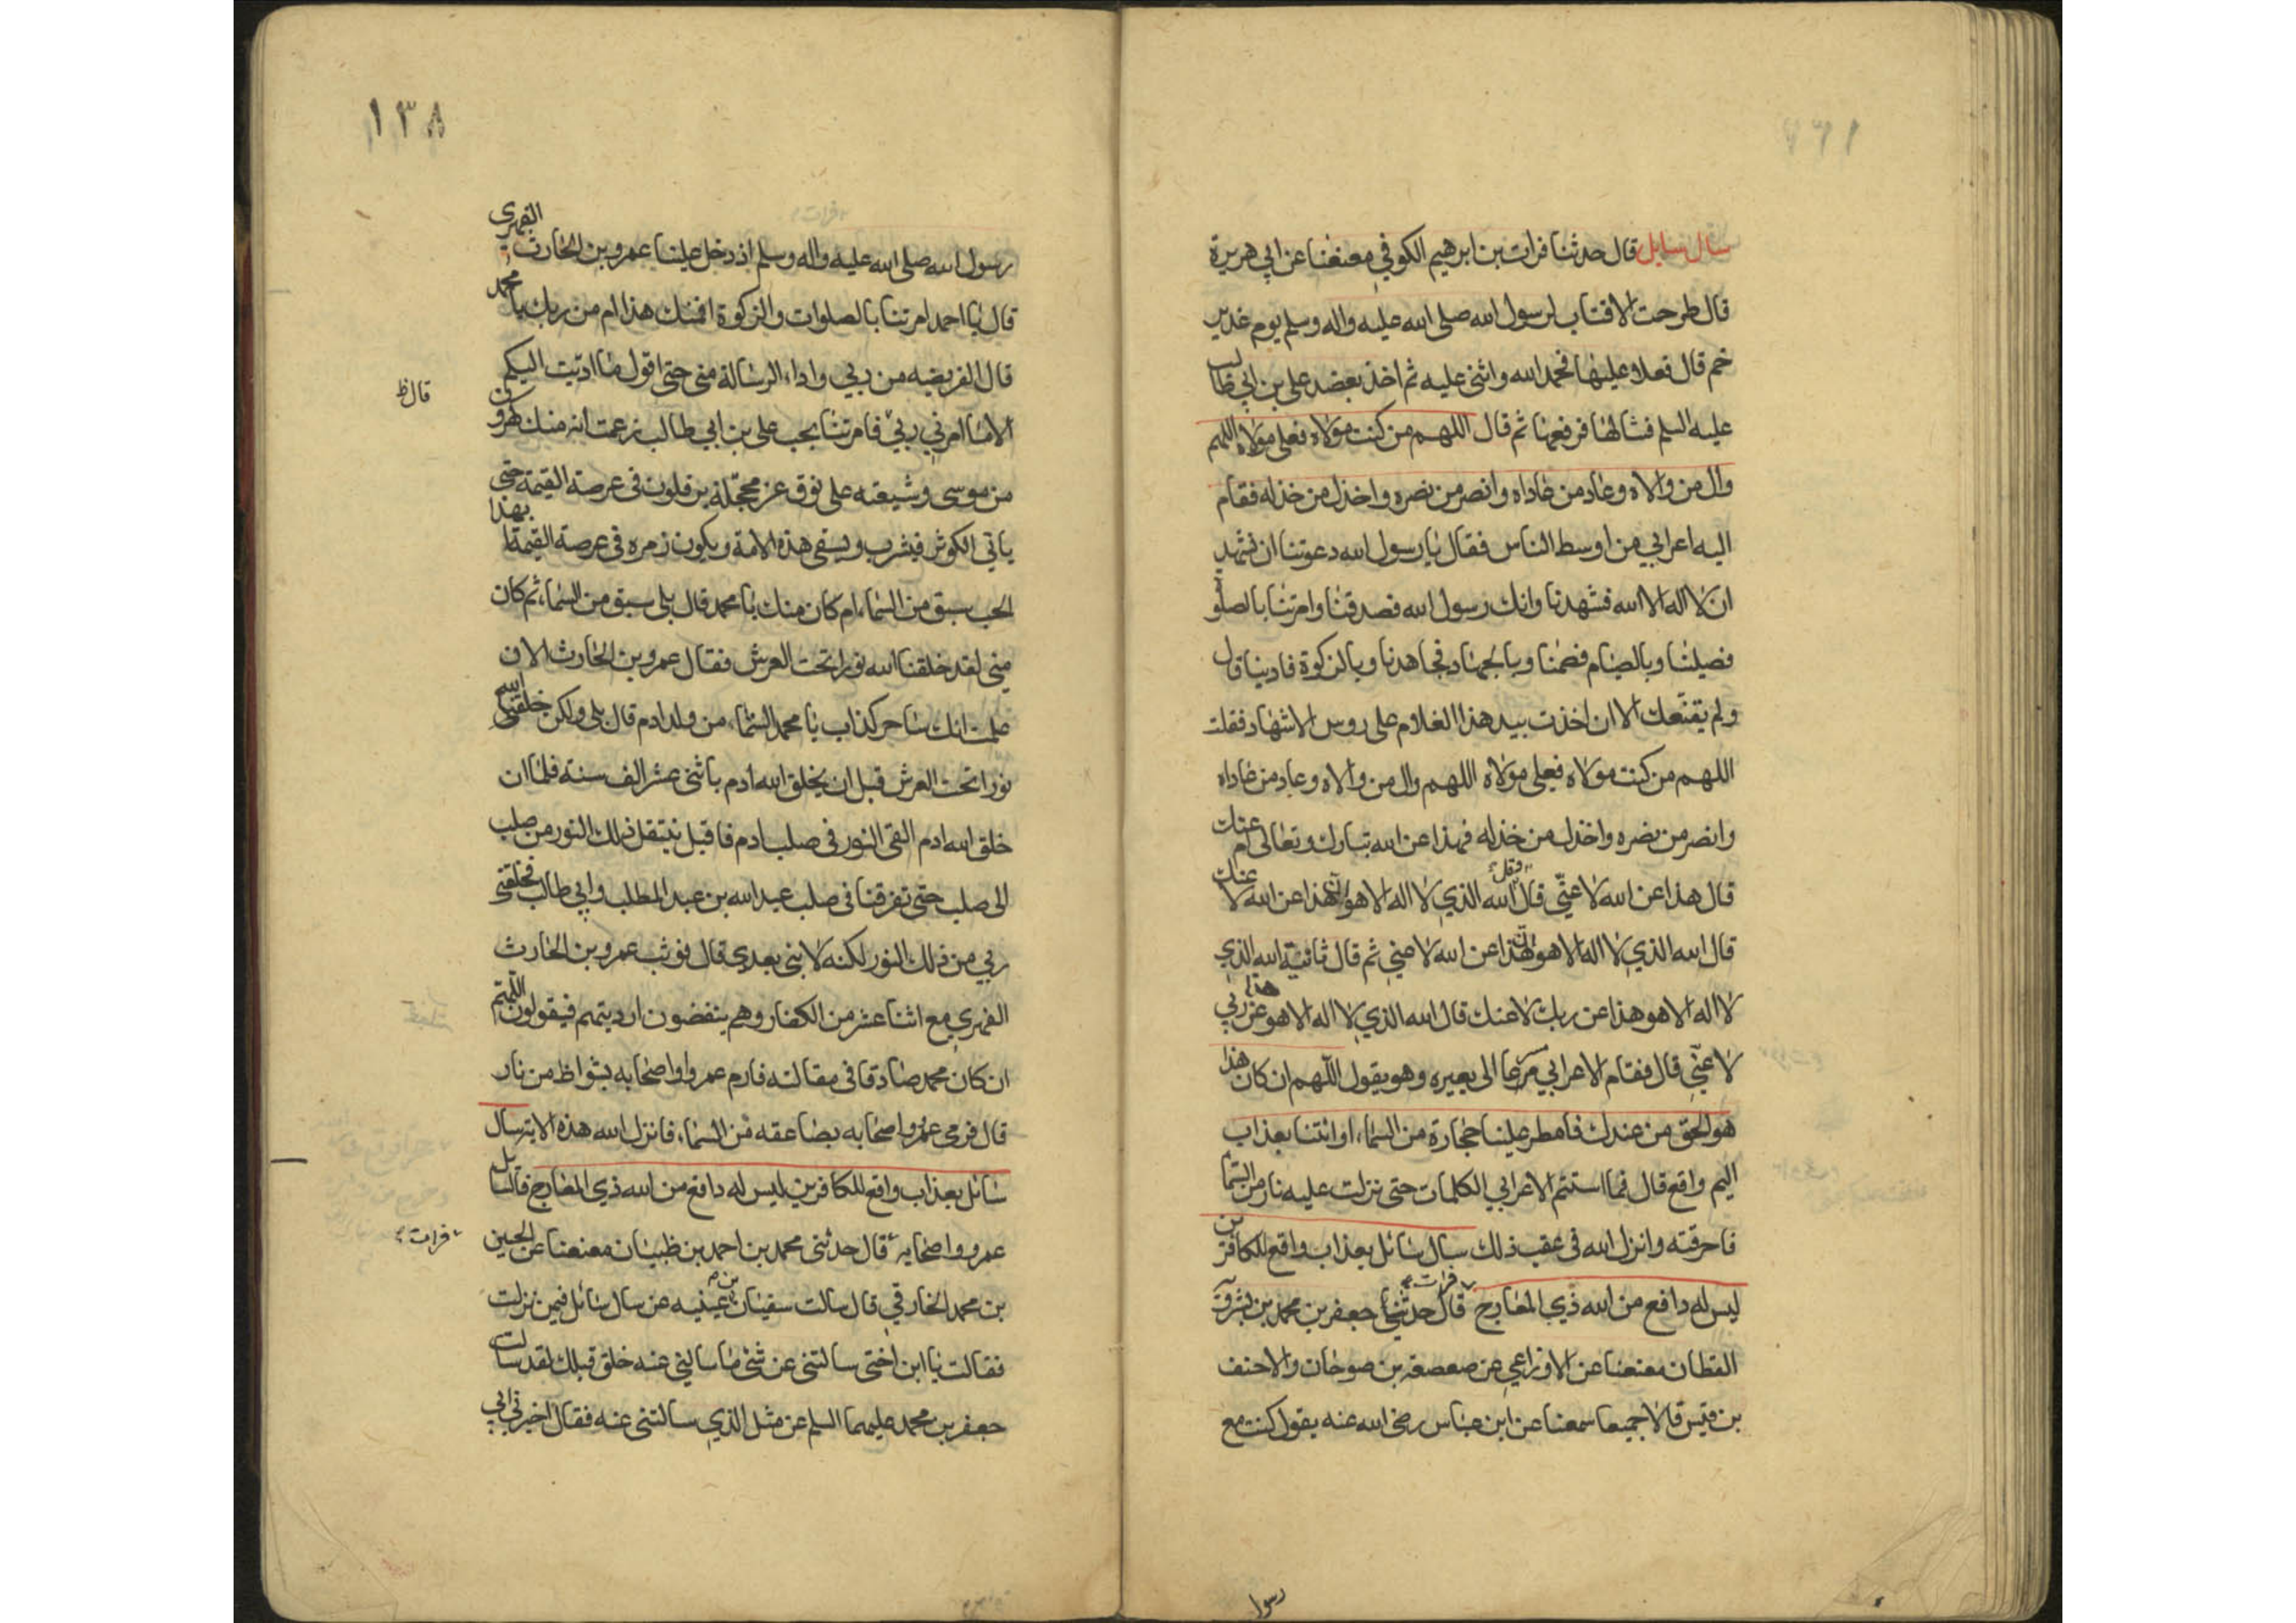 سال سایل قال حدثنا فرات بن ابرهیم الكوفي معنعنا عن ابي هريرة
قال طرحت الاقتاب لرسول الله صلى الله عليه واله وسلم يوم غدير
خم قال فعلا عليها فحمد الله واثنى عليه ثم اخذ بعضد علي بن ابي طالب
عليه السلم فشالها فرفعها ثم قال اللهم من كنت مولاه فعلي مولاه اللهم
وال من والاه وعاد من عاداه وانصر من نصره واخذل من خذله فقام
اليه اعرابي من اوسط الناس فقال يا رسول الله دعوتنا ان نشهد
ان لا اله الا الله فشهدنا وانك رسول الله فصدقنا وامرتنا بالصلوة
فصلينا وبالصيام فصمنا وبالجهاد فجاهدنا وبالزكوة فادينا قال
ولم يقنعك الا ان اخذت بيد هذا الغلام على روس الاشهاد فقلت
اللهم من كنت مولاه فعلي مولاه اللهم وال من والاه وعاد من عاداه
وانصر من نصره واخذل من خذله فهذا عن الله تبارك وتعالى ام عنك
قال هذا عن الله لا عني قال الله الذي لا اله الا هو لهذا عن الله لا عنك
قال الله الذي لا اله الا هو لهذا عن الله لا عني ثم قال ثانية الله الذي
لا اله الا هو هذا عن ربك لا عنك قال الله الذي لا اله الا هو هذا عن ربي
لا عني قال فقام الاعرابي مسرعا الى بعيره وهو يقول اللهم ان كان هذا
هو الحق من عندك فامطر علينا حجارة من السماء او ائتنا بعذاب
اليم واقع قال فما استتم الاعرابي الكلمات حتى نزلت عليه نار من السما
فاحرقته وانزل الله في عقب ذلك سال سائل بعذاب واقع للكافرين
ليس له دافع من الله ذي المعارج فرات قال حدثنا جعفر بن محمد بن بشرويه
القطان معنعنا عن الاوزاعي عن صعصعة بن صوحان والاحنف
بن قيس قالا جميعا سمعنا عن ابن عباس رضي الله عنه يقول كنت مع
رسول
١٣٨
رسول الله صلى الله عليه واله وسلم اذ دخل علينا عمرو بن الحارث الفهري
قال يا احمد امرتنا بالصلوات والزكوة افمنك هذا ام من ربك يا محمد
قال الفريضه من ربي واداء الرسالة مني حتى اقول ما اديت اليكم
قال ظ
الا ما امرني ربي فامرتنا بحب علي بن ابي طالب زعمت انه منك كهرون
من موسى وشيعته على نوق غر محجلة يرفلون في عرصة القيمة حتى
ياتي الكوثر فيشرب ويسقي هذه الامة ويكون زمره في عرصة القيمة ابهذا
الحب سبق من السماء ام كان منك يا محمد قال بلى سبق من السماء ثم كان
مني لقد خلقنا الله نورا تحت العرش فقال عمرو بن الحارث الان
علمت انك ساحر كذاب يا محمد الستما من ولد ادم قال بلى ولكن خلقني الله
نورا تحت العرش قبل ان يخلق الله ادم باثنى عشر الف سنة فلما ان
خلق الله ادم القى النور في صلب ادم فاقبل ينتقل ذلك النور من صلب
الى صلب حتى تفرقنا في صلب عبد الله بن عبد المطلب وابي طالب فخلقني
ربي من ذلك النور لكنه لا نبي بعدي قال فوثب عمرو بن الحارث
الفهري مع اثنا عشر من الكفار وهم ينفضون ارديتهم فيقولون اللهم
ان كان محمد صادقا في مقالته فارم عمروا واصحابه بشواظ من نار
قال فرمي عمرو واصحابه بصاعقه من السماء فانزل الله هذه الاية سال
سائل بعذاب واقع للكافرين ليس له دافع من الله ذي المعارج فالسائل
عمرو واصحابه قال حدثني محمد بن احمد بن ظبيان معنعنا عن الحسين
فرات
بن محمد الخارقي قال سالت سفيان بن عيينه عن سال سائل فيمن نزلت
فقالت يا ابن اختى سالتني عن شئ ما سالني عنه خلق قبلك لقد سالت
جعفر بن محمد عليهما السلم عن مثل الذي سالتني عنه فقال اخبرني ابي